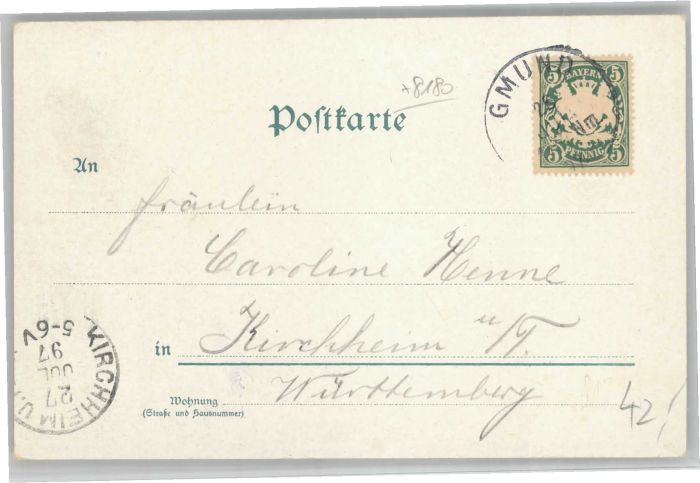 GMUND
26
5 BAYERN 5
5 PFENNIG 5
+8180
Postkarte
An
Fräulein
Caroline Henne
in Kirchheim u/T.
Württemberg
Wohnung
(Straße und Hausnummer)
KIRCHHEIM U.T.
27
JUL
97
5-6V
42/